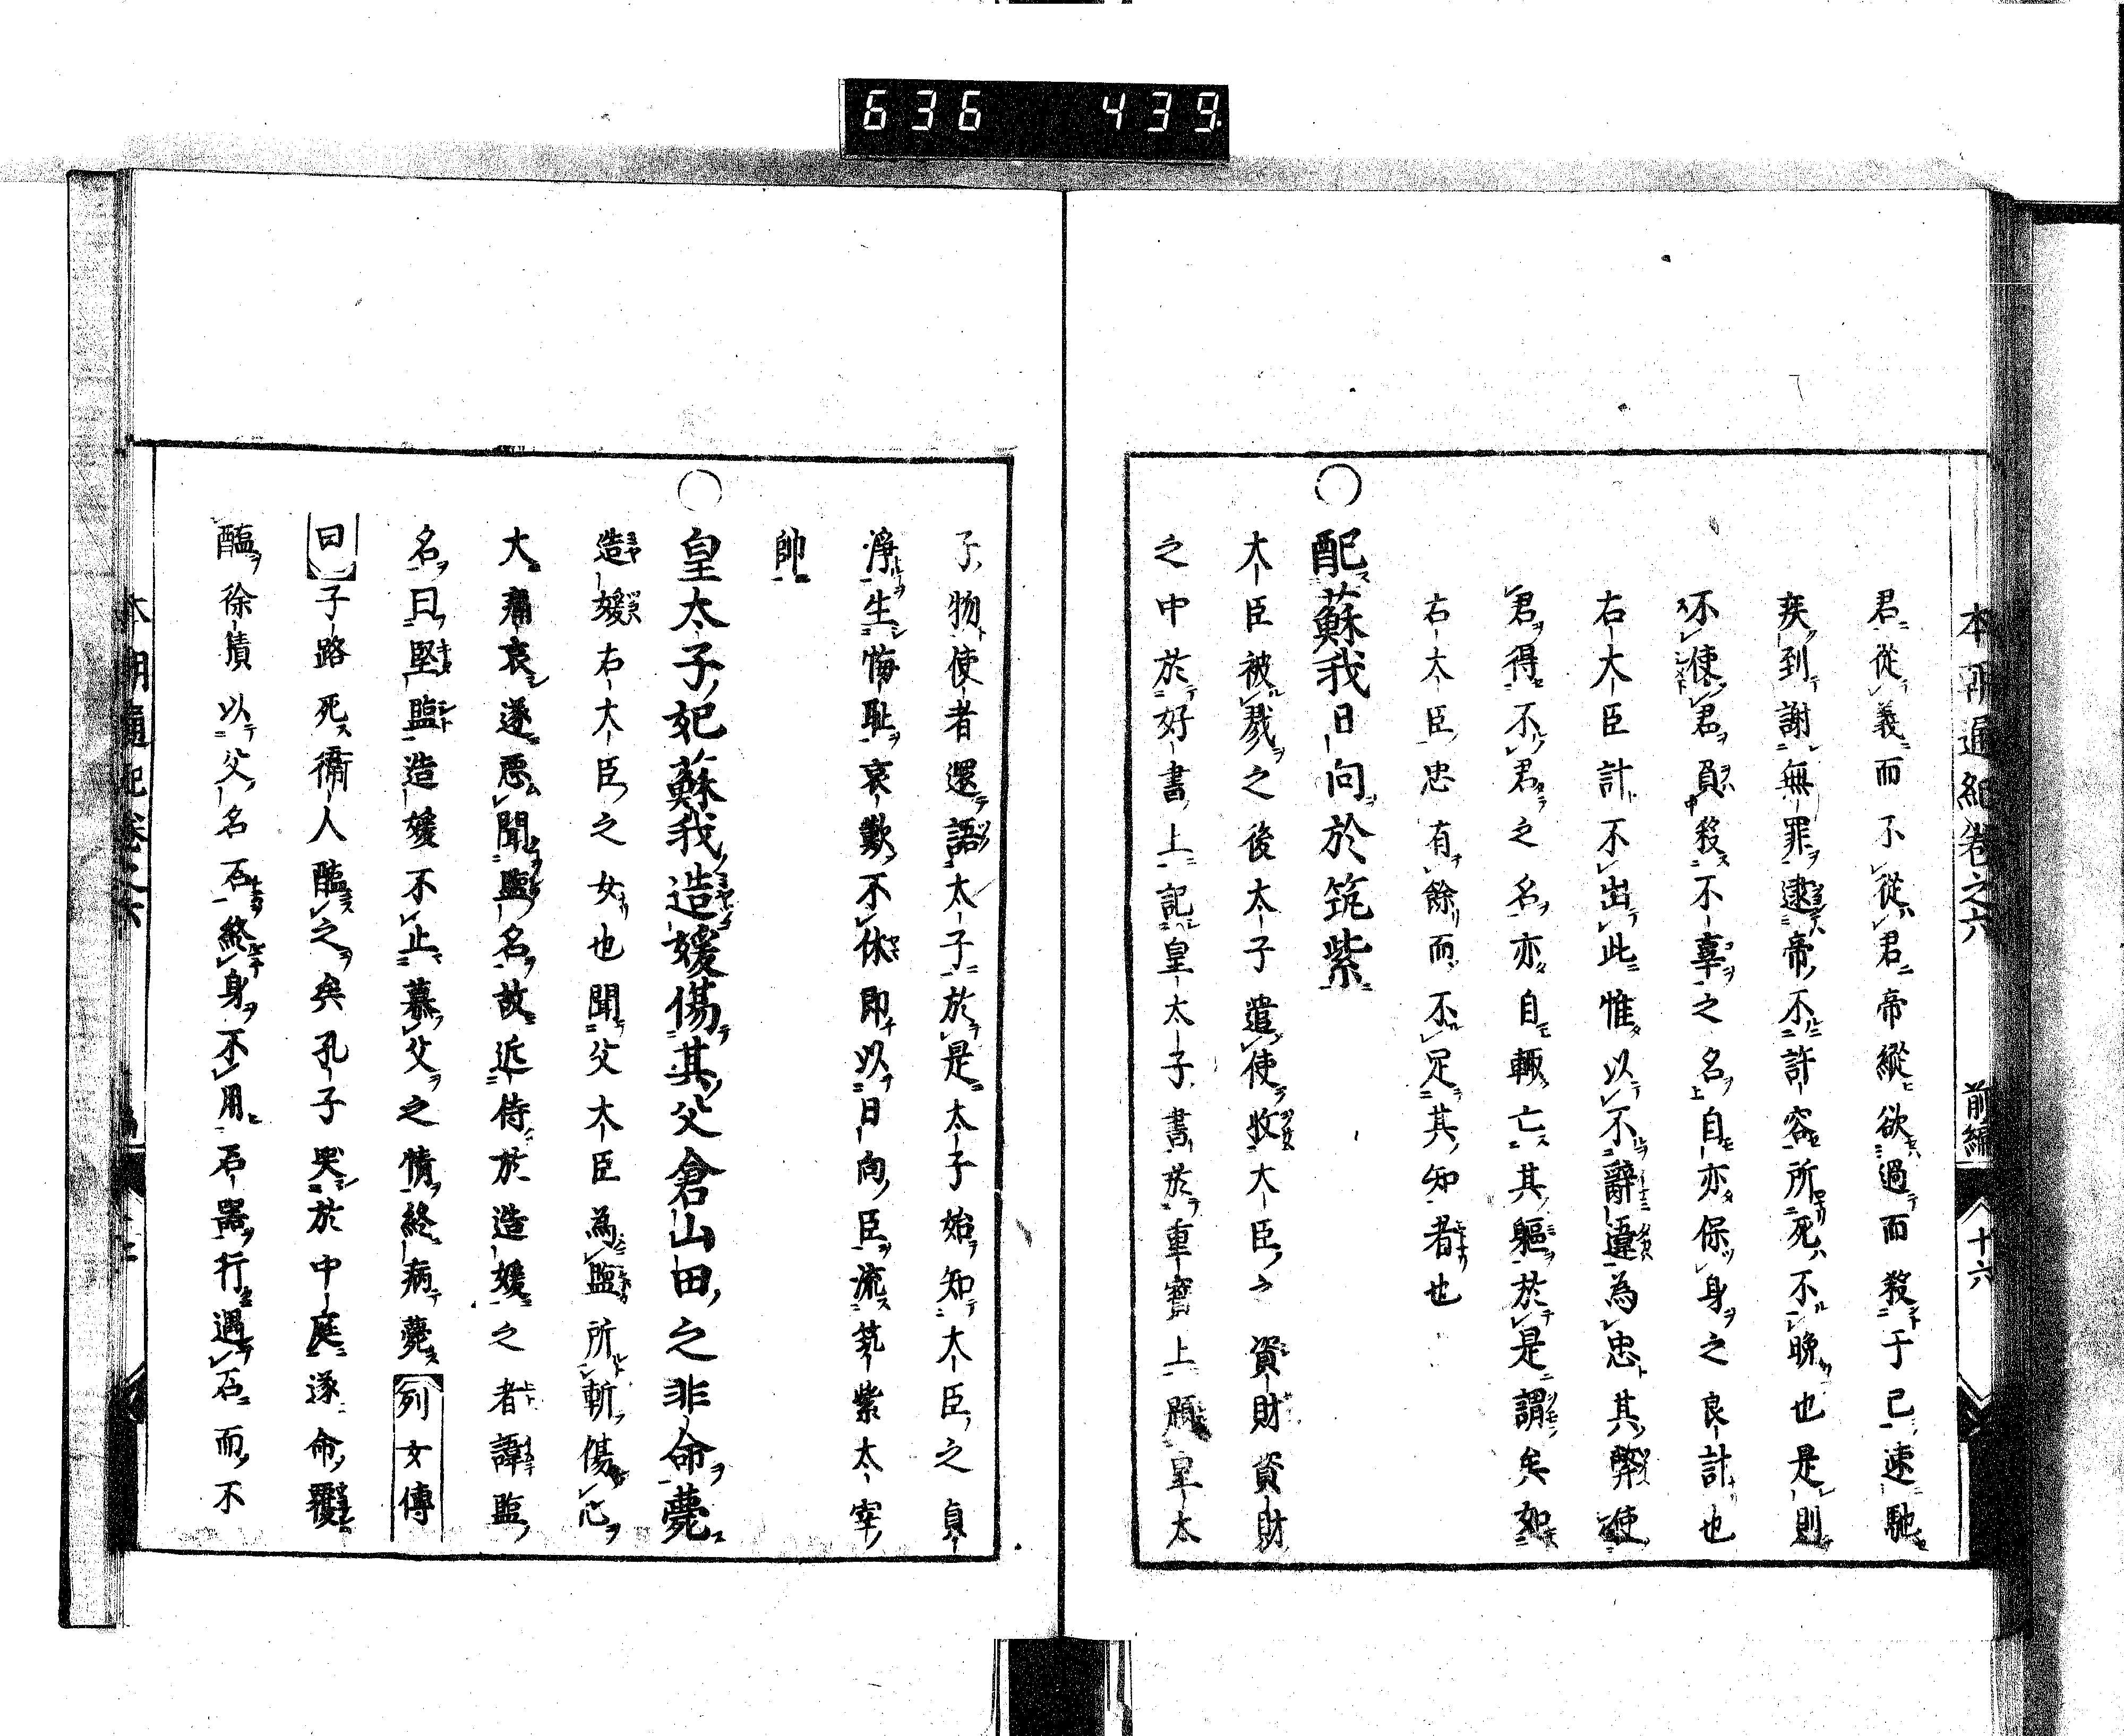 636 439
本朝通紀卷之六 前編 十六
君從義而不從君帝縱欲過而殺于已速馳
疾到謝無罪逮帝不許容所死不晚也是則
不使君負殺不辜之名自亦保身之良計也
右大臣計不出此惟以不辭違為忠其弊使
君得不君之名亦自輙亡其軀於是謂矣如
右大臣忠有餘而不足其知者也
○配蘇我日向於筑紫
大臣被戮之後太子遣使收大臣々資財資財
之中於好書上記皇太子書於重寶上題皇太
子物使者還語太子於是太子始知大臣之貞
淨生悔耻哀歎不休即以日向臣流筑紫太宰
帥
○皇太子妃蘇我造媛傷其父倉山田之非命薨
造媛右大臣之女也聞父大臣為鹽所斬傷心
大痛哀遂惡聞鹽名故近侍於造媛之者諱鹽
名曰堅鹽造媛不止慕父之情終病薨列女傳
曰子路死衞人醢之矣孔子哭於中庭遂命覆
醢徐積以父名石終身不用石器行遇石而不
本朝通紀卷之六